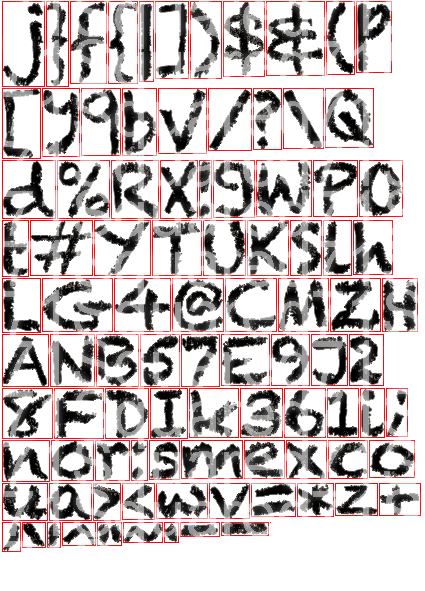 j } f { | ] ) $ & ( p
[ y q b V / ? \ Q
d % R X ! g W P O
t # Y T U K S L h
L G 4 @ C M Z H
A N B 5 7 E 9 J 2
8 F D I k 3 6 1 i ;
n o r : s m e x c o
u a > < w v = * z +
^ " ~ . - _